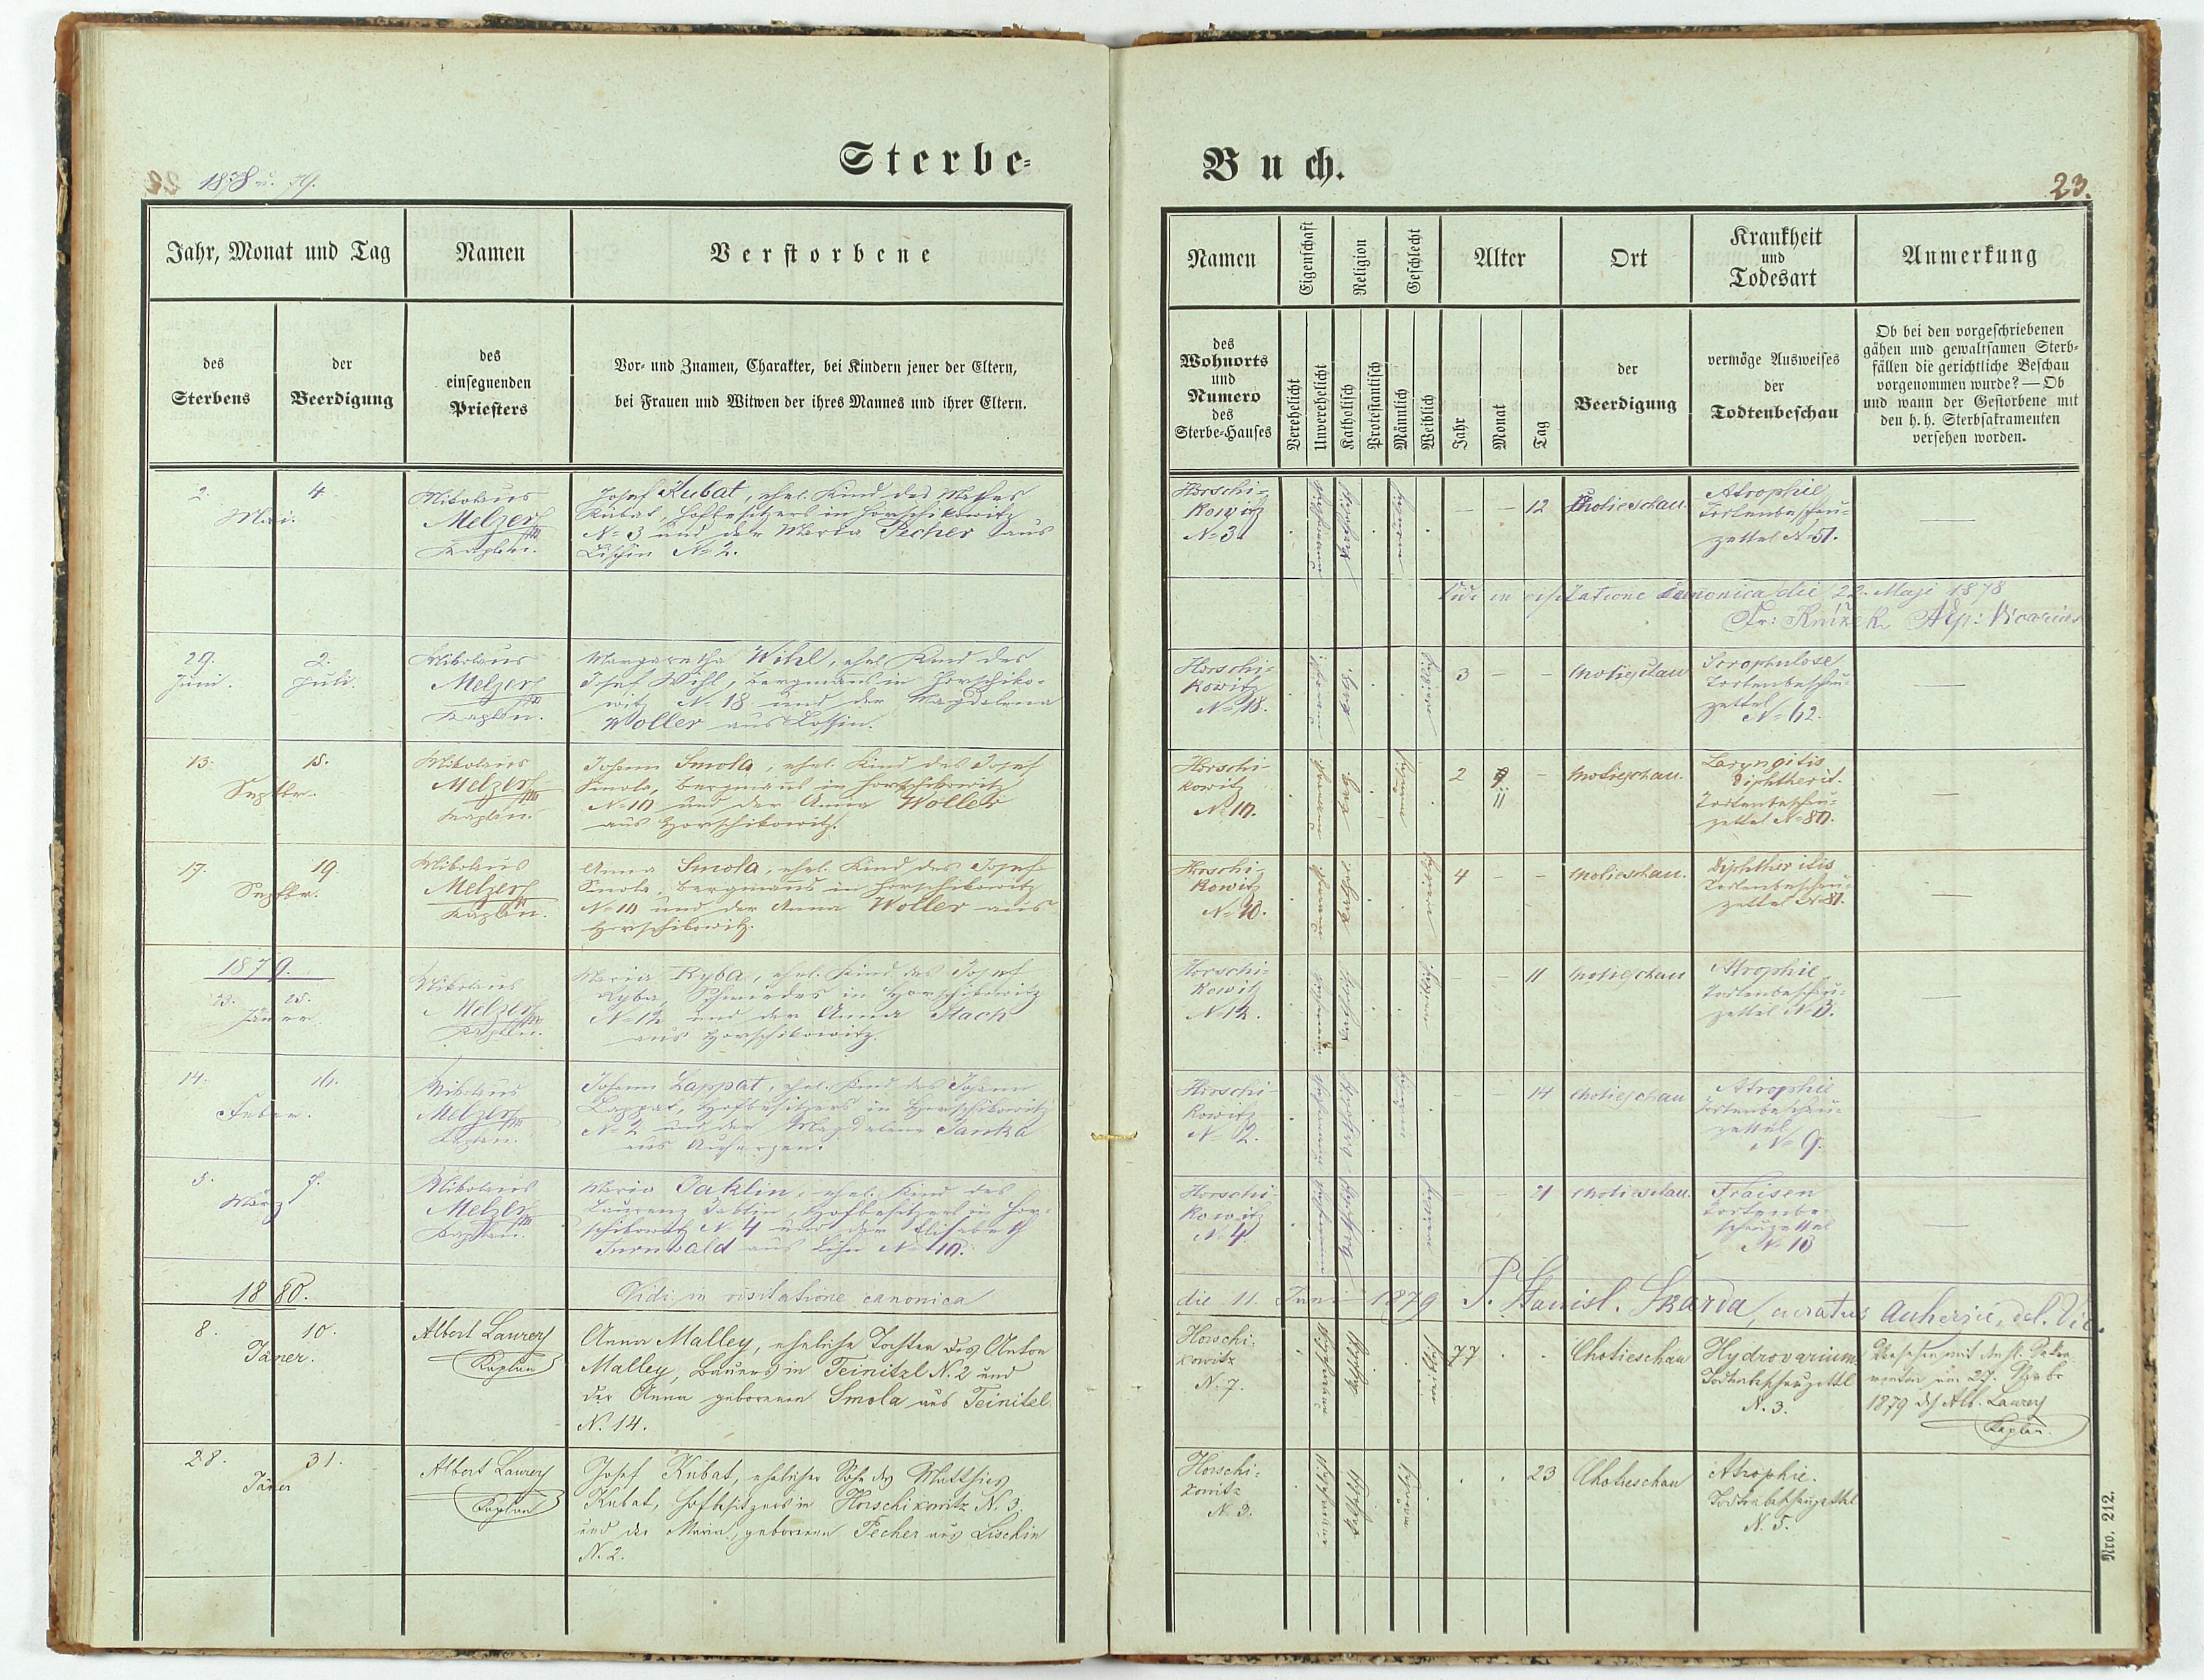 Sterbe-
Buch.
1878 u. 79.
23.
Jahr, Monat und Tag
Namen
Verstorbene
des
Sterbens
der
Beerdigung
des
einsegnenden
Priesters
Vor- und Znamen, Charakter, bei Kindern jener der Eltern,
bei Frauen und Witwen der ihres Mannes und ihrer Eltern.
Namen
Eigenschaft
Religion
Geschlecht
Alter
Ort
Krankheit
und
Todesart
Anmerkung
des
Wohnorts
und
Numero
des
Sterbe-Hauses
Verehelicht
Unverehelicht
Katholisch
Protestantisch
Männlich
Weiblich
Jahr
Monat
Tag
der
Beerdigung
vermöge Ausweises
der
Todtenbeschau
Ob bei den vorgeschriebenen
gähen und gewaltsamen Sterb-
fällen die gerichtliche Beschau
vorgenommen wurde? — Ob
und wann der Gestorbene mit
den h. h. Sterbsakramenten
versehen worden.
2. 4.
Mai.
Nikolaus
Melzer
Kaplan.
Josef Kubat, ehel. Kind des Mathes
Kubat, Hofbesitzers in Horschikowitz
N° 3 und der Maria Pecher aus
Lischin N° 2.
Horschi-
kowitz
N° 3.
unverehelicht
katholisch
männlich
— — 12
Chotieschau.
Atrophie
Todtenbeschau-
zettel N° 51.
—
Vidi in visitatione canonica die 22. Maji 1878
Fr: Knížek Aep: Vicarius
29. 2.
Juni. Juli.
Nikolaus
Melzer
Kaplan.
Margaretha Wihl, ehel. Kind des
Josef Wihl, Bergmanns in Horschiko-
witz N° 18 und der Magdalena
Woller aus Lossin.
Horschi-
kowitz
N° 18.
kath.
weiblich
3 — —
Chotieschau
Scrophulose
Todtenbeschau-
zettel
N° 62.
—
13. 15.
Septbr.
Nikolaus
Melzer
Kaplan.
Johann Smola, ehel. Kind des Josef
Smola, Bergmanns in Horschikowitz
N° 10 und der Anna Woller
aus Horschikowitz.
Horschi-
kowitz
N° 10.
kath.
männlich
2 9 —
11
Chotieschau.
Laryngitis
diphtherit.
Todtenbeschau-
zettel N° 80.
—
17. 19.
Septbr.
Nikolaus
Melzer
Kaplan.
Anna Smola, ehel. Kind des Josef
Smola, Bergmanns in Horschikowitz
N° 10 und der Anna Woller aus
Horschikowitz.
Horschi-
kowitz
N° 10.
kathol.
weiblich
4 — —
Chotieschau.
Diphtheritis
Todtenbeschau-
zettel N° 81.
—
1879.
23. 25.
Jänner
Nikolaus
Melzer
Kaplan.
Maria Ryba, ehel. Kind des Josef
Ryba, Schmiedes in Horschikowitz
N° 12 und der Anna Stach
aus Horschikowitz.
Horschi-
kowitz
N° 12.
katholisch
weiblich.
— — 11
Chotieschau
Atrophie
Todtenbeschau-
zettel N° 3.
—
14. 16.
Feber.
Nikolaus
Melzer
Kaplan.
Johann Lappat, ehel. Kind des Johann
Lappat, Hofbesitzers in Horschikowitz
N° 2 und der Magdalena Janka
aus Auherzen.
Horschi-
kowitz
N° 2.
— — 14
Chotieschau
Atrophie
Todtenbeschau-
zettel
N° 9.
—
5. 7.
März
Nikolaus
Melzer
Kaplan.
Maria Paklin, ehel. Kind des
Laurenz Paklin, Hofbesitzers in Hor-
schikowitz N° 4 und der Elisabeth
Turnwald aus Lihn N° 10.
Horschi-
kowitz
N° 4.
weiblich
— — 21
Chotieschau.
Fraisen
Todtenbe-
schauzettel
N° 10
—
Vidi in visitatione canonica
die 11. Juni 1879 P. Stanisl. Skarda, curatus Auherzii, del. Vic.
1880.
8. 10.
Jäner.
Albert Laurer
Kaplan
Anna Malley, eheliche Tochter des Anton
Malley, Bauers in Teinitzl N. 2 und
der Anna geborenen Smola aus Teinitzl
N. 14.
Horschi-
kowitz
N. 7.
weiblich
77 . .
Chotieschau
Hydrovarium.
Todtenbeschauzettl
N. 3.
Versehen mit den hl. Sakra-
menten am 27.
1879 d. Alb. Laurer
Kaplan.
28. 31.
Jäner
Albert Laurer
Kaplan
Josef Kubat, ehelicher Sohn des Matthias
Kubat, Hofbesitzers in Horschikowitz N. 3.
und der Maria, geborenen Pecher aus Lischin
N. 2.
Horschi-
kowitz
N. 3.
. . 23
Chotieschau
Atrophie.
Todtenbeschauzettel
N. 5.
Nro. 212.